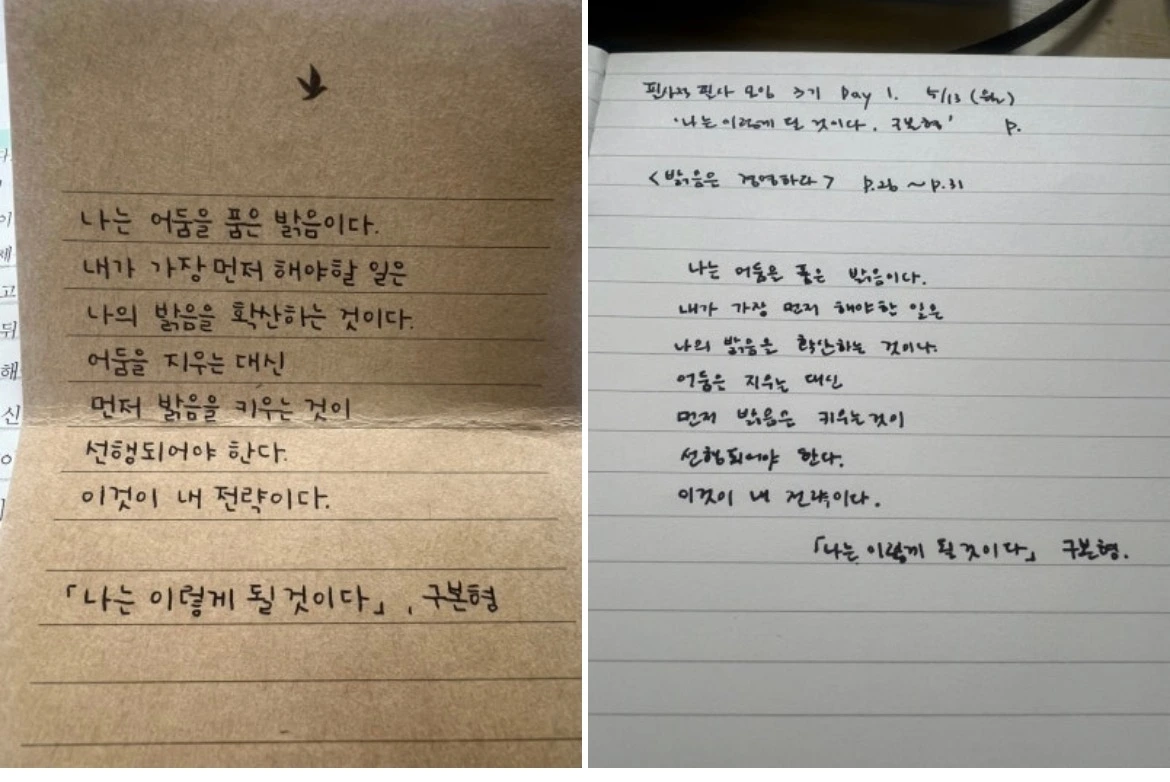 나는 어둠을 품은 밝음이다.
내가 가장 먼저 해야할 일은
나의 밝음을 확산하는 것이다.
어둠을 지우는 대신
먼저 밝음을 키우는 것이
선행되어야 한다.
이것이 내 전략이다.
「나는 이렇게 될 것이다」, 구본형
필사적 필사 모임 3기 Day 1. 5/13 (월)
'나는 이렇게 될 것이다. 구본형' p.
<밝음을 경영하라> p.26 ~ p.31
나는 어둠을 품은 밝음이다.
내가 가장 먼저 해야할 일은
나의 밝음을 확산하는 것이다.
어둠을 지우는 대신
먼저 밝음을 키우는 것이
선행되어야 한다.
이것이 내 전략이다.
「나는 이렇게 될 것이다」 구본형.